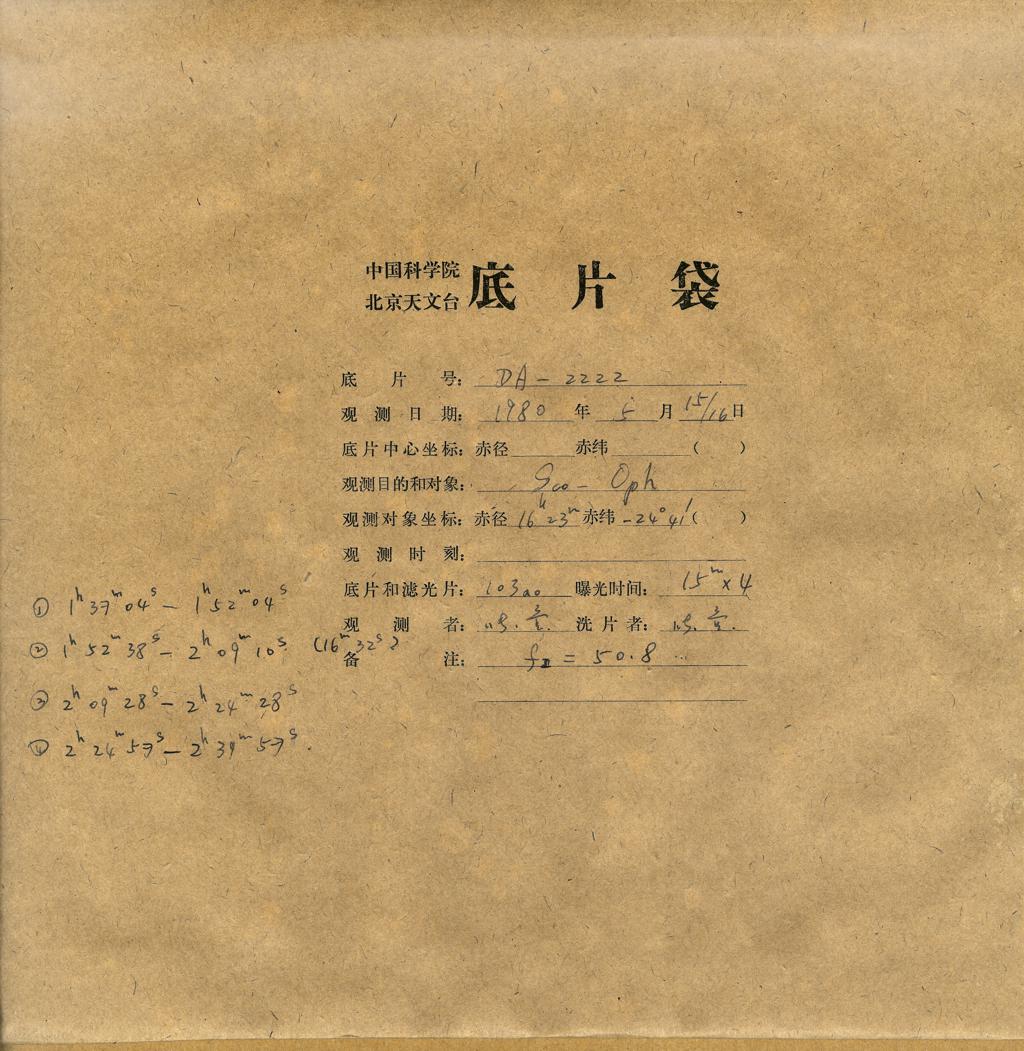 中国科学院
北京天文台
底片袋
底片号: DA-2222
观测日期: 1980年5月15/16日
底片中心坐标: 赤径 赤纬 ( )
观测目的和对象: Sco-Oph
观测对象坐标: 赤径 16ʰ23ᵐ 赤纬 -24°41′ ( )
观测时刻:
底片和滤光片: 103ao 曝光时间: 15ᵐ×4
观测者: 洗片者:
备注: = 50.8
① 1ʰ37ᵐ04ˢ - 1ʰ52ᵐ04ˢ
② 1ʰ52ᵐ38ˢ - 2ʰ09ᵐ10ˢ (16ᵐ32ˢ)
③ 2ʰ09ᵐ28ˢ - 2ʰ24ᵐ28ˢ
④ 2ʰ24ᵐ57ˢ - 2ʰ39ᵐ57ˢ.